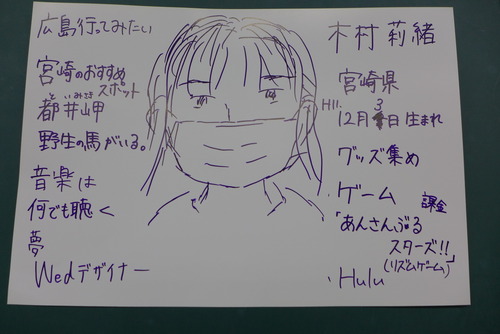 広島行ってみたい
宮崎のおすすめ
スポット
といみさき
都井岬
野生の馬がいる。
音楽は
何でも聴く
夢
Wedデザイナー
木村 莉緒
宮崎県
H11.
12月3日生まれ
グッズ集め
ゲーム 課金
「あんさんぶる
スターズ!!」
(リズムゲーム)
・Hulu